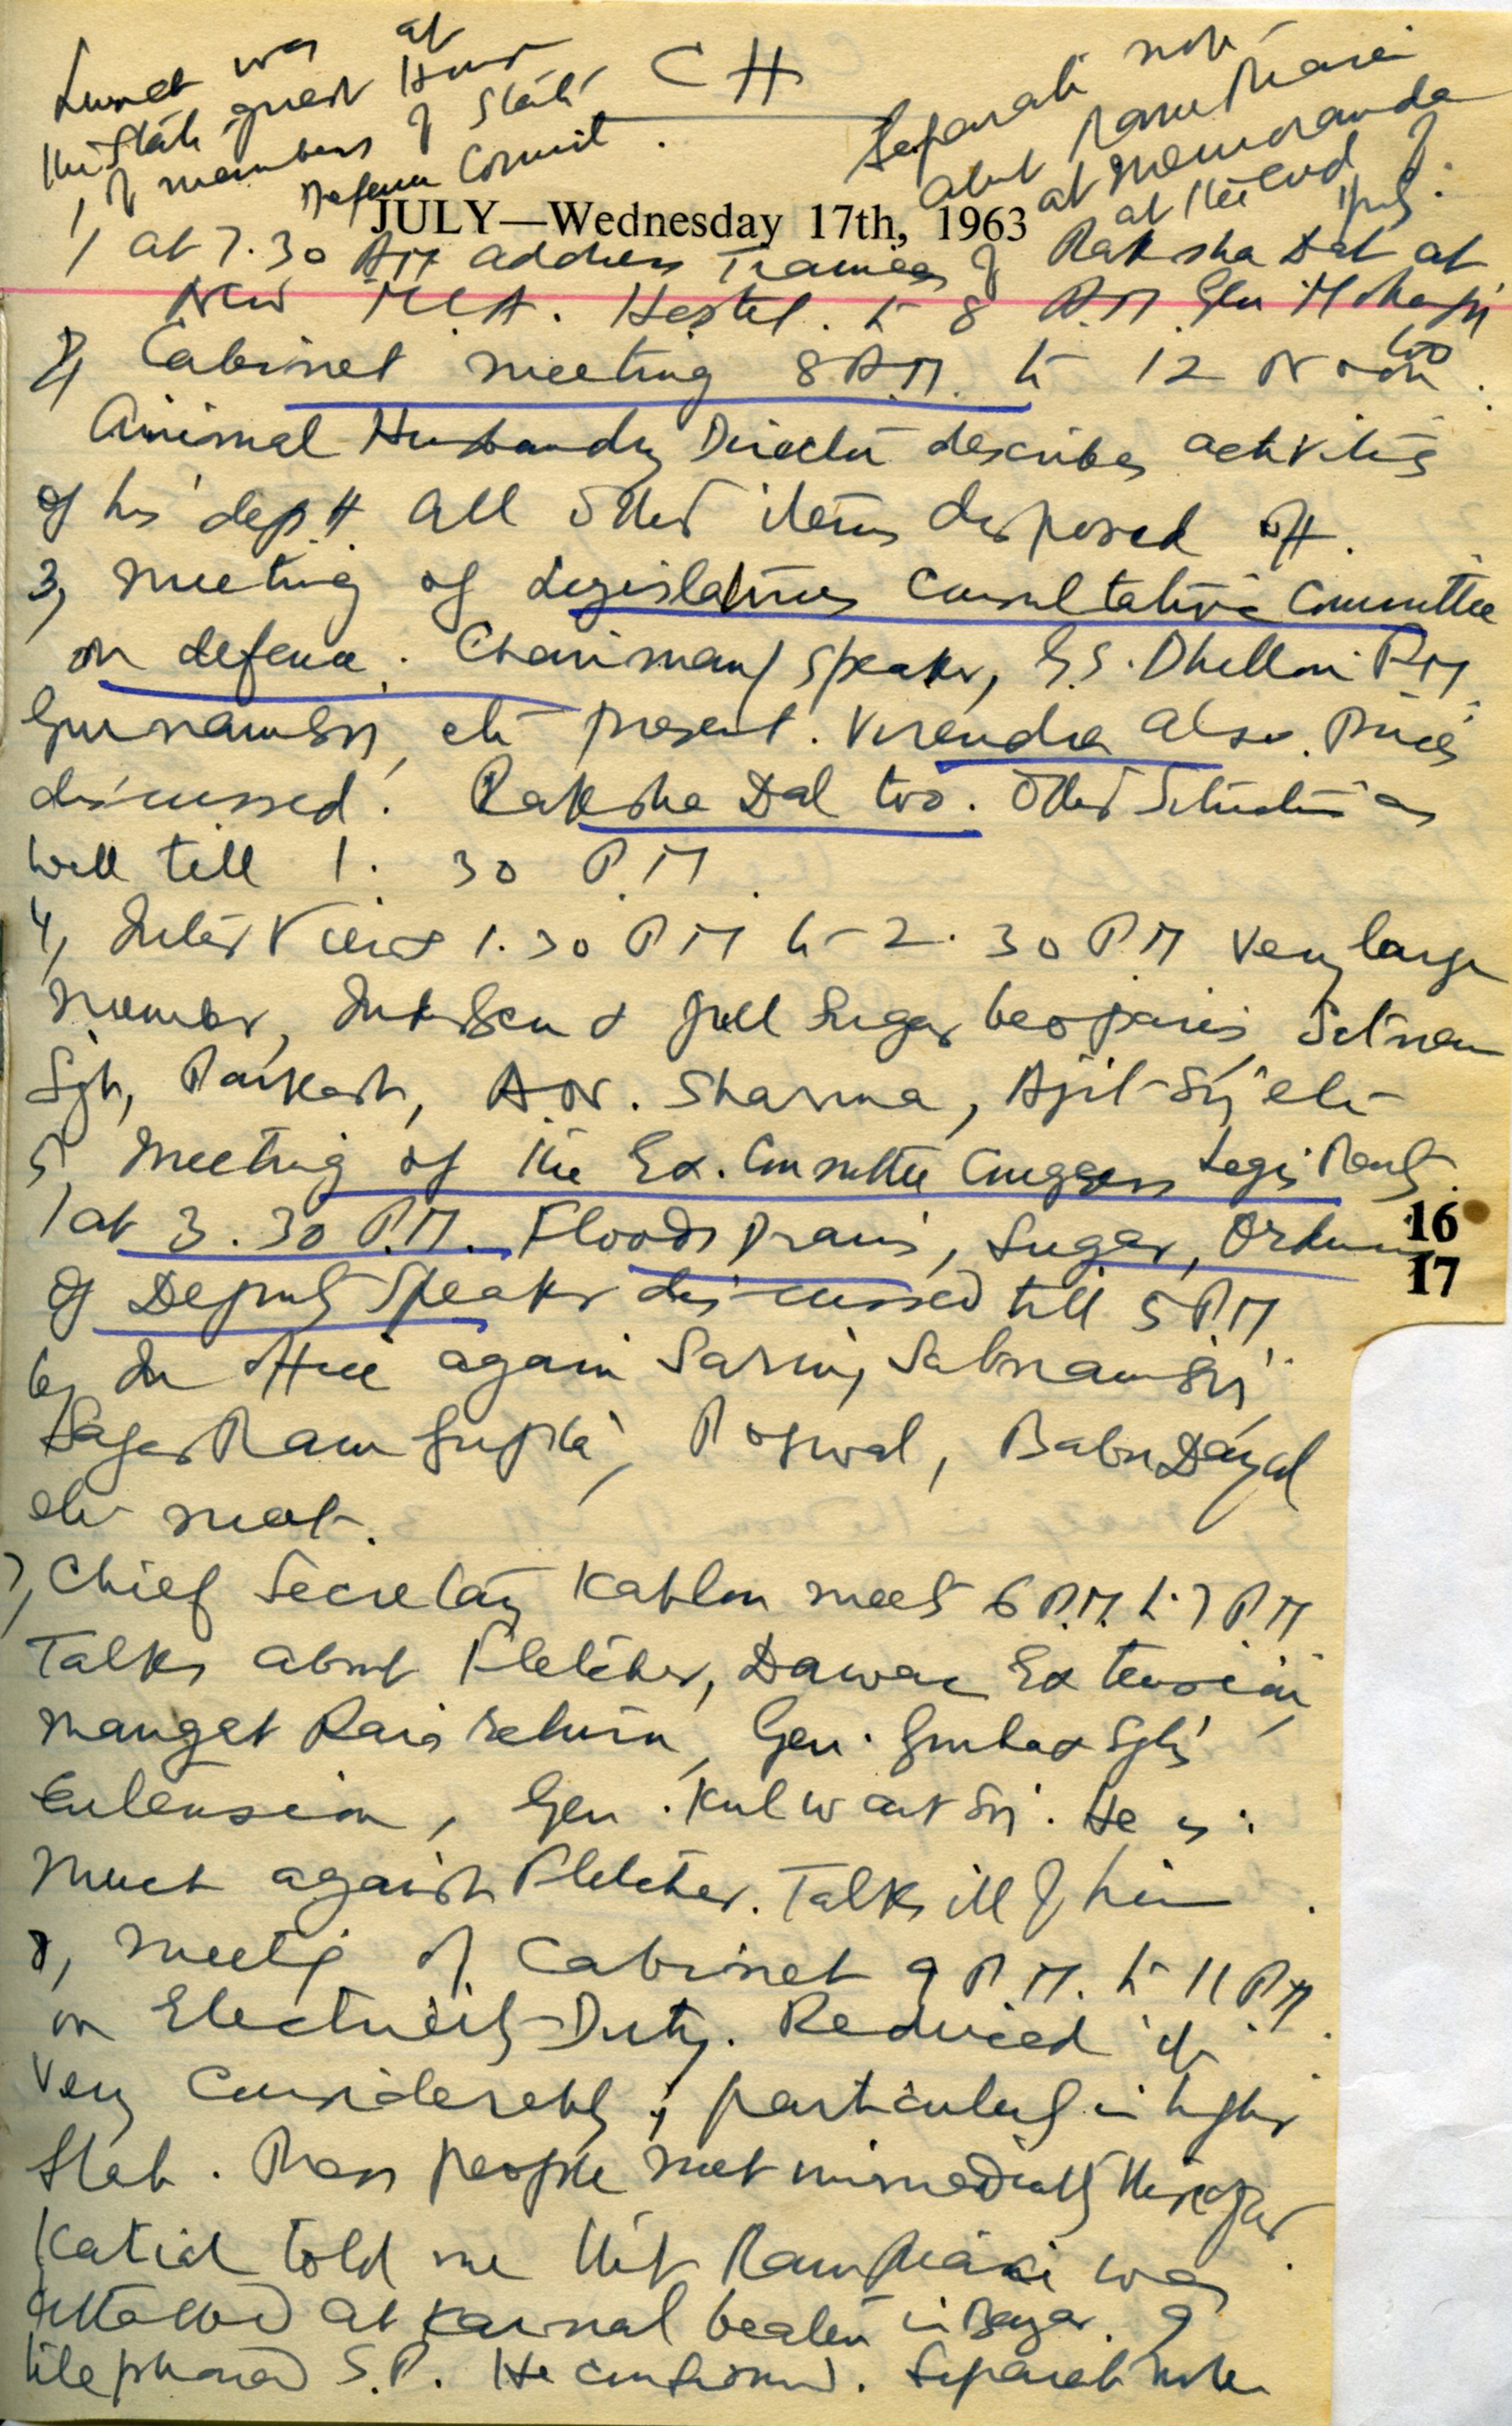 Lunch was at
the State guest House
of members of State
Defence Council.
CH
Separate note
about Ram Piari
at memoranda
at the end of
July.
JULY—Wednesday 17th, 1963
1, at 7.30 AM address Trainees of Raksha Dal at
New M.L.A. Hostel. to 8 A.M. Gen Mohan Sij
too
2, Cabinet meeting 8 A.M. to 12 Noon.
Animal Husbandry Director describes activities
of his deptt. All other items disposed off.
3, Meeting of Legislatures Consultative Committee
on defence. Chairman/Speaker, G.S. Dhillon. PM
Gurnam Sij, etc present. Virendra also. Prices
discussed. Raksha Dal too. Other Situation as
well till 1.30 P.M.
4, Interviews 1.30 PM to 2.30 PM very large
number, Inder Sen & Sugar beoparis, Satnam
Sgh, Parkash, A.N. Sharma, Ajit Sij etc
5, Meeting of the Ex. Committee Congress Legis. Party
at 3.30 P.M. Floods, Drains, Sugar,
16
17
of Deputy Speaker discussed till 5 P.M.
6, In office again Sarin, Satnam Sij,
Sagar Ram Gupta, Poswal, Babu Dayal
etc meet.
7, Chief Secretary Kahlon meets 6 P.M. to 7 PM
Talks about Fletcher, Dawar Extension,
Mangat Rai's return, Gen. Gurbax Sgh's
Extension, Gen. Kulwant Sij. He is
much against Fletcher. Talks ill of him.
8, Meeting of Cabinet 9 P.M. to 11 PM.
on Electricity Duty. Reduced it
very considerably, particularly in higher
slab. Press people met immediately thereafter.
Katial told me that Ram Piari was
attacked at Karnal beaten in Bazar. I
telephoned S.P. He confirmed. Separate note